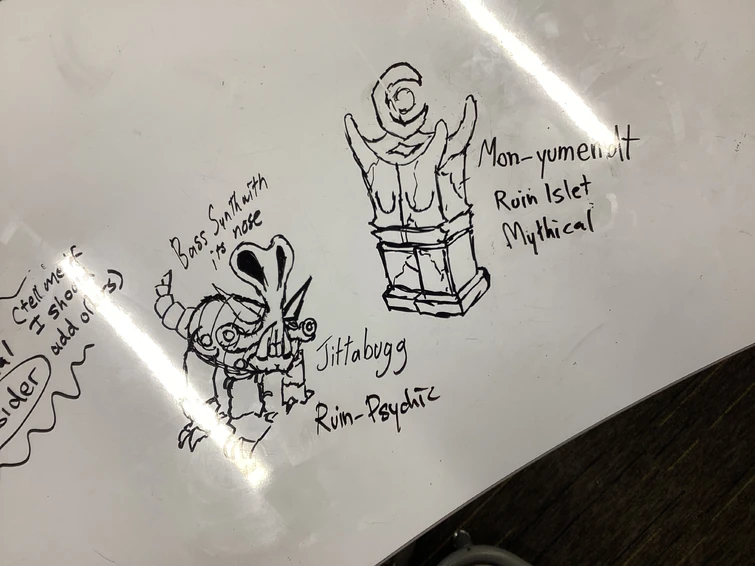 Mon-yumendlt
Ruin Islet
Mythical
Bass Synth with
its nose
(tell me if
I should
add others)
Jittabugg
Ruin-Psychic